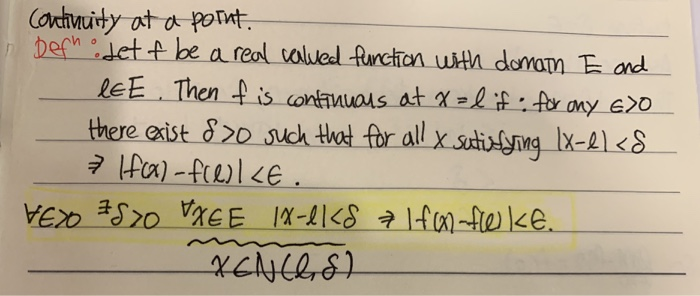 Continuity at a point.
Defⁿ: Let f be a real valued function with domain E and
l∈E. Then f is continuous at x=l if: for any ∈>0
there exist δ>0 such that for all x satisfying |x-l|<δ
⇒ |f(x)-f(l)|<∈.
∀∈>0 ∃δ>0 ∀x∈E |x-l|<δ ⇒ |f(x)-f(l)|<∈.
x∈N(l,δ)